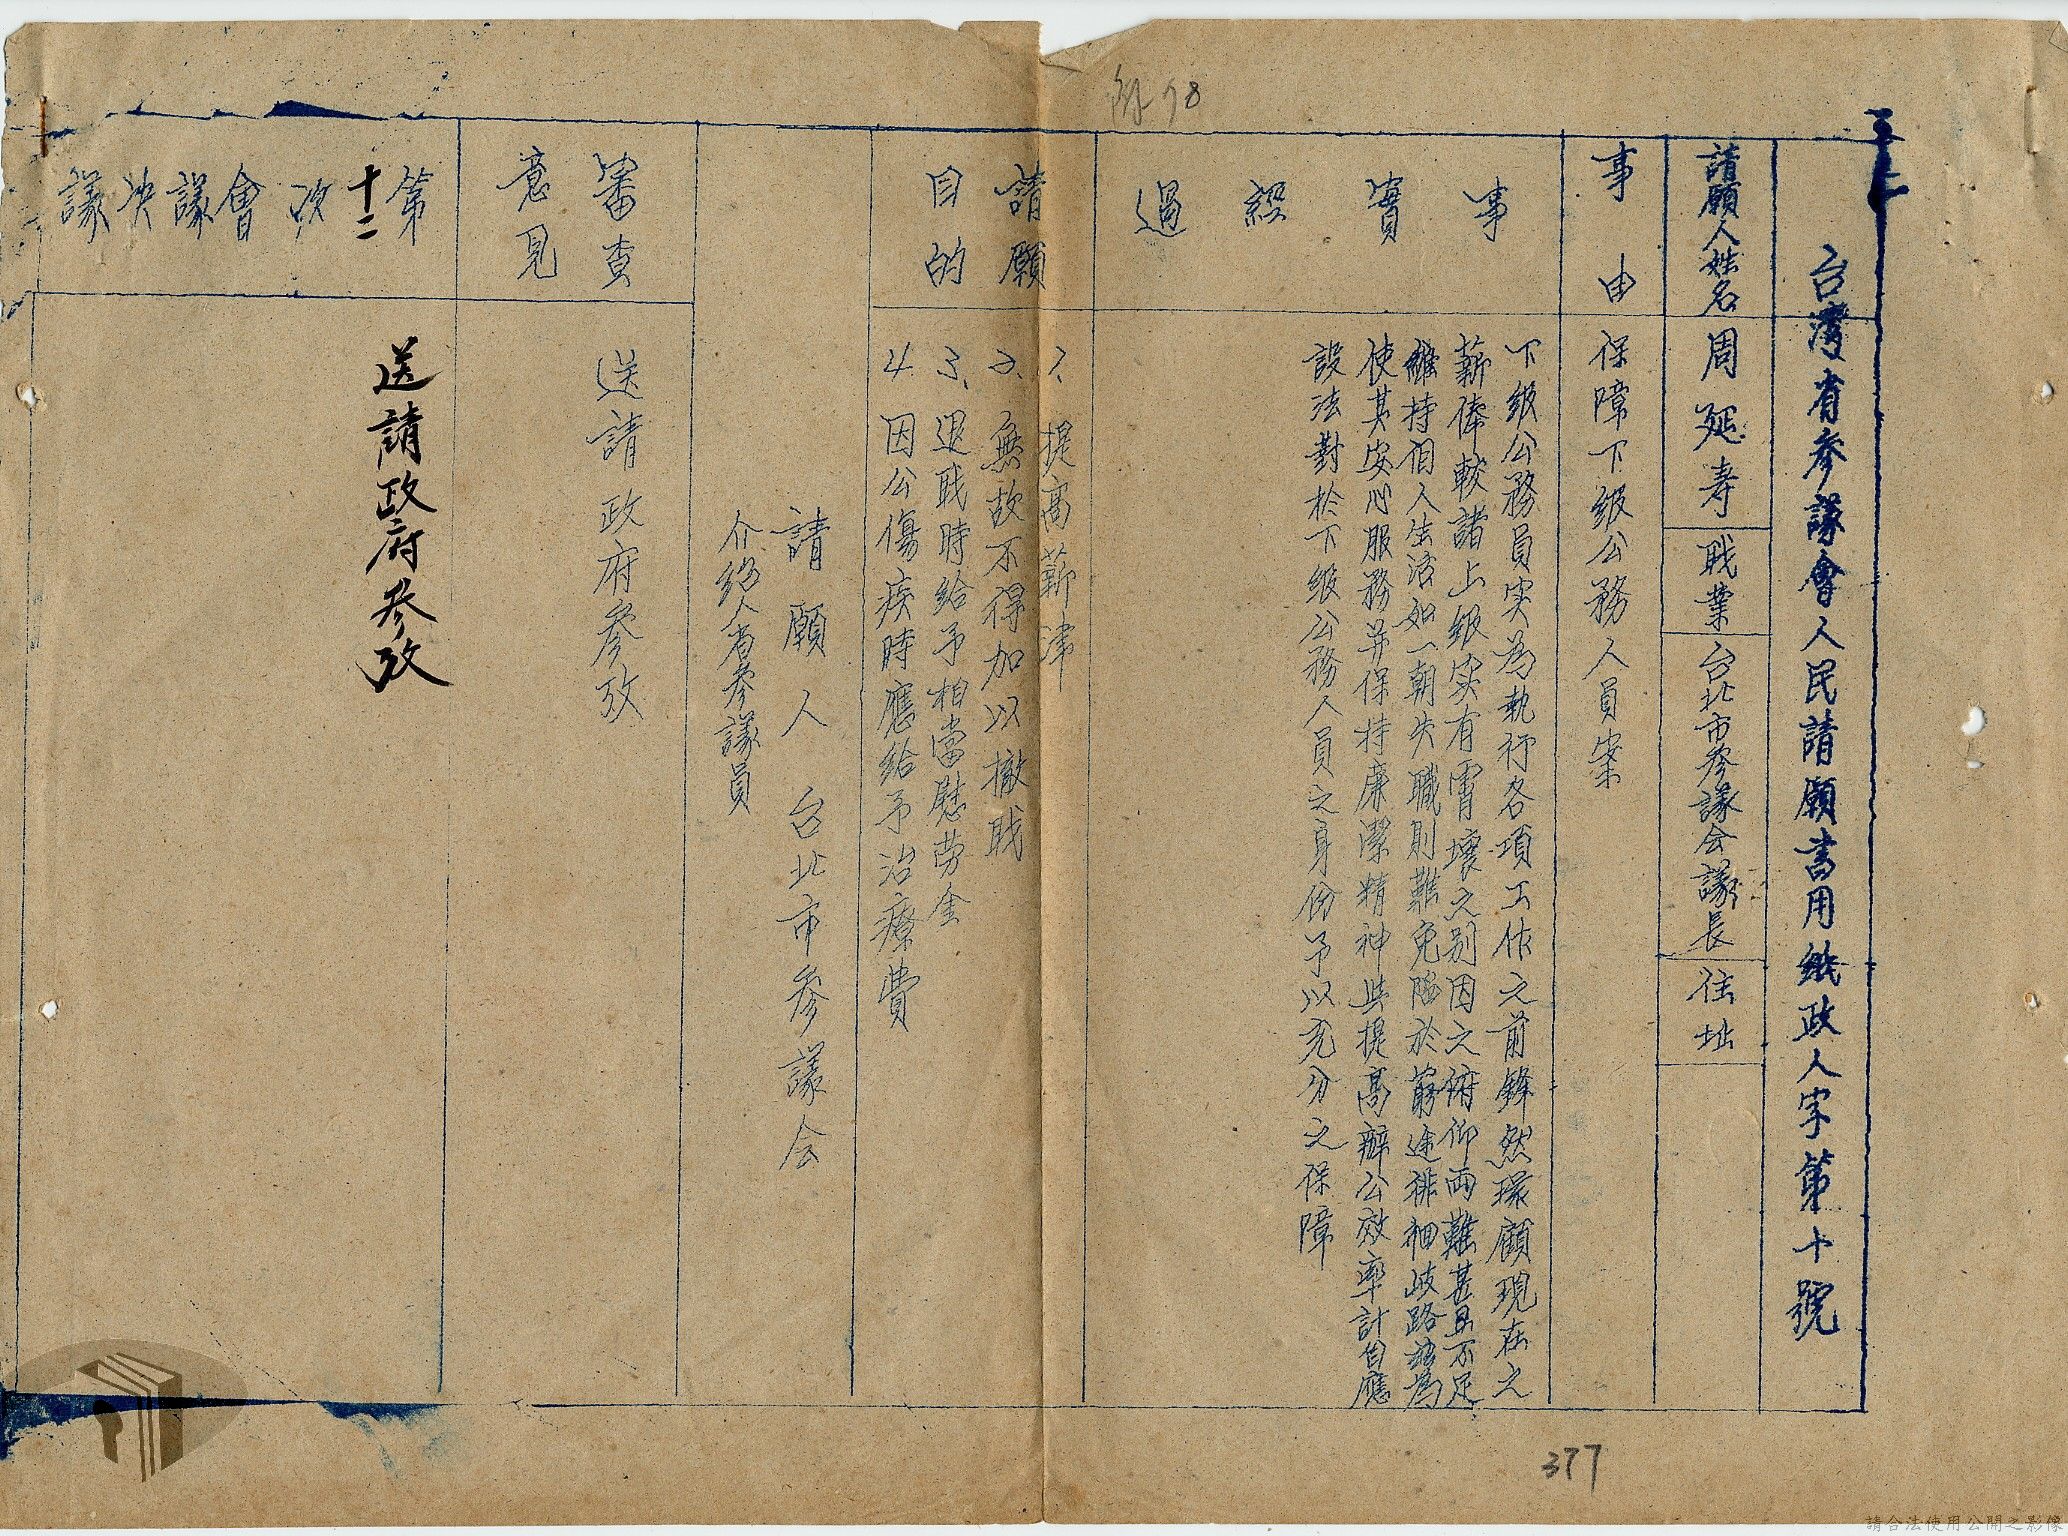 附98
台灣省參議會人民請願書用紙政人字第十號
請願人姓名 周延壽 職業 台北市參議会議長 住址
事由 保障下級公務人員案
事實經過
下級公務員实為執行各項工作之前鋒然環顧現在之
薪俸較諸上級实有霄壤之别因之俯仰両難甚且不足
維持個人生活如一朝失職則難免陷於窮途徘徊歧路 為
使其安心服務并保持廉潔精神 提高辦公效率計自應
設法對於下級公務人員之身份予以充分之保障
請願目的
1、提高薪津
2、無故不得加以撤职
3、退职時給予相當慰劳金
4 因公傷疾時應給予治療費
請願人 台北市參議会
介紹人省參議員
審查意見
送請政府參攷
第十二次會議決議
送請政府參攷
377
請合法使用公開之影像